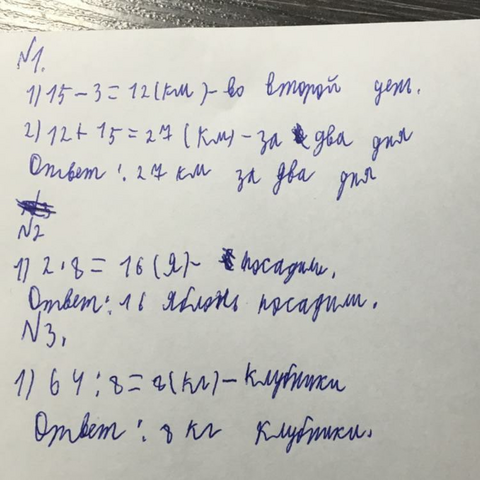 №1.
1) 15 - 3 = 12 (км) - во второй день.
2) 12 + 15 = 27 (км) - за два дня
Ответ: 27 км за два дня
№2
1) 2 · 8 = 16 (я) - посадили.
Ответ: 16 яблонь посадили.
№3.
1) 64 : 8 = 8 (кг) - клубники
Ответ: 8 кг клубники.